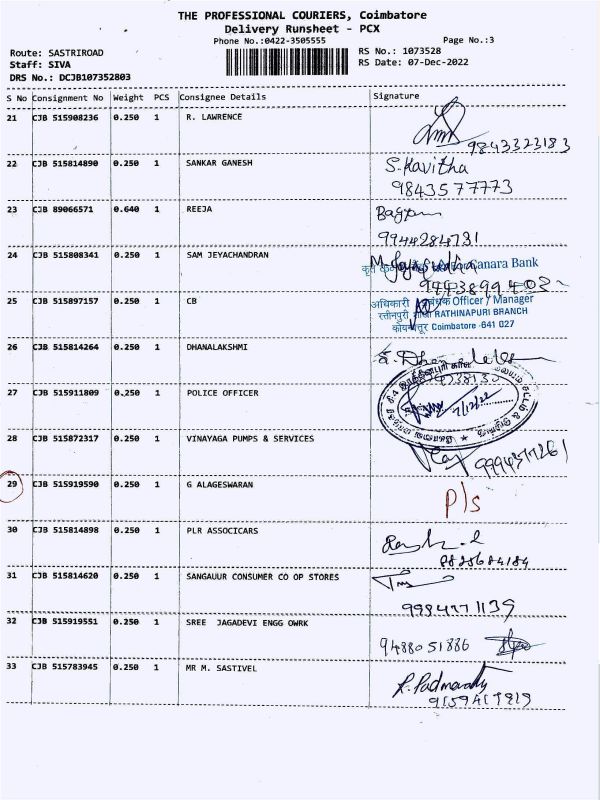 THE PROFESSIONAL COURIERS, Coimbatore
Delivery Runsheet - PCX
Phone No.:0422-3505555 Page No.:3
Route: SASTRIROAD RS No.: 1073528
Staff: SIVA RS Date: 07-Dec-2022
DRS No.: DCJB107352803
S No Consignment No Weight PCS Consignee Details Signature
21 CJB 515908236 0.250 1 R. LAWRENCE
9843323183
22 CJB 515814890 0.250 1 SANKAR GANESH S.Kavitha
9843577773
23 CJB 89066571 0.640 1 REEJA
9944284731
24 CJB 515808341 0.250 1 SAM JEYACHANDRAN
Canara Bank
25 CJB 515897157 0.250 1 CB
अधिकारी Officer / Manager
रत्तीनपुरी RATHINAPURI BRANCH
Coimbatore -641 027
26 CJB 515814264 0.250 1 DHANALAKSHMI
27 CJB 515911809 0.250 1 POLICE OFFICER
7/12/22
28 CJB 515872317 0.250 1 VINAYAGA PUMPS & SERVICES
29 CJB 515919590 0.250 1 G ALAGESWARAN P/s
30 CJB 515814898 0.250 1 PLR ASSOCICARS
31 CJB 515814620 0.250 1 SANGAUUR CONSUMER CO OP STORES
32 CJB 515919551 0.250 1 SREE JAGADEVI ENGG OWRK
9488051886
33 CJB 515783945 0.250 1 MR M. SASTIVEL